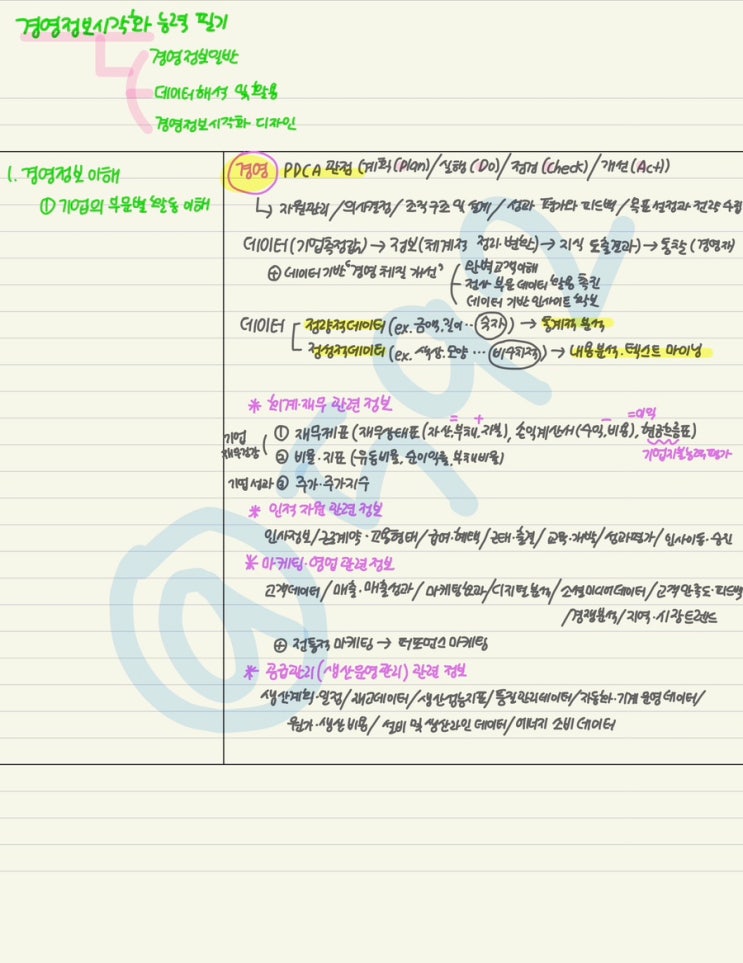 경영정보시각화 능력 필기
경영정보일반
데이터 해석 및 활용
경영정보시각화 디자인
1. 경영정보 이해
① 기업의 부문별 활동 이해
경영 PDCA 관점 (계획(Plan)/실행(Do)/점검(Check)/개선(Act))
↳ 자원관리/의사결정/조직구조 및 설계/성과 평가와 피드백/목표설정과 전략 수립
데이터(기업측정값) → 정보(체계적 정리·변환) → 지식 도출결과) → 통찰 (경영재
⊕ 데이터 기반 "경영 체질 개선"
완벽 고객이해
전사 부문 데이터 활용 촉진
데이터 기반 인사이트 확보
데이터
정량적데이터 (ex. 금액, 길이 … 숫자) → 통계적 분석
정성적데이터 (ex. 색상·모양 … 비수치적) → 내용분석·텍스트 마이닝
* 회계·재무 관련 정보
= + - =이익
기업 재무건강
① 재무제표 (재무상태표 (자산·부채, 자본), 손익계산서 (수익, 비용), 현금흐름표)
② 비율·지표 (유동비율, 순이익률, 부채비율)
기업지불능력평가
기업 성과 ③ 주가·주가지수
* 인적 자원 관련 정보
인사정보/근로계약·고용형태/급여·혜택/근태·출결/교육·개발/성과평가/인사이동·승진
* 마케팅·영업 관련 정보
고객데이터/매출·매출성과/마케팅효과/디지털 분석/소셜미디어데이터/고객만족도·피드백
/경쟁분석/지역·시장트렌드
⊕ 전통적 마케팅 → 퍼포먼스 마케팅
* 공급관리(생산운영관리) 관련 정보
생산계획·일정/재고데이터/생산성능지표/품질관리데이터/자동화·기계 운영 데이터/
원가·생산 비용/설비 및 생산라인 데이터/에너지 소비 데이터